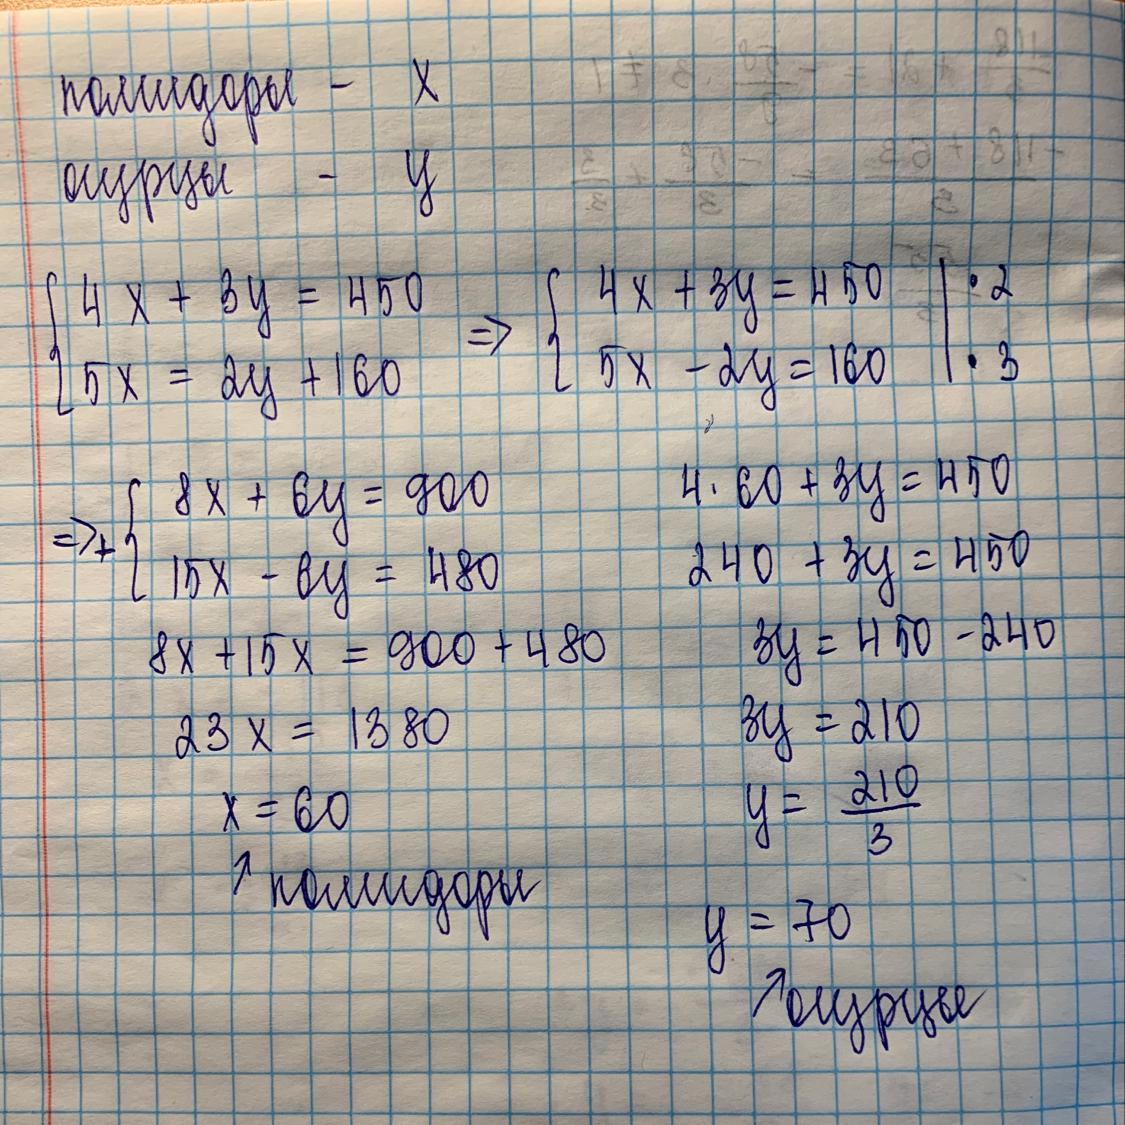 помидоры - x
огурцы - y
{ 4x + 3y = 450
5x = 2y + 160
=> { 4x + 3y = 450 | · 2
5x - 2y = 160 | · 3
=> + { 8x + 6y = 900
15x - 6y = 480
8x + 15x = 900 + 480
23x = 1380
x = 60
↗ помидоры
4 · 60 + 3y = 450
240 + 3y = 450
3y = 450 - 240
3y = 210
y = 210/3
y = 70
↗ огурцы